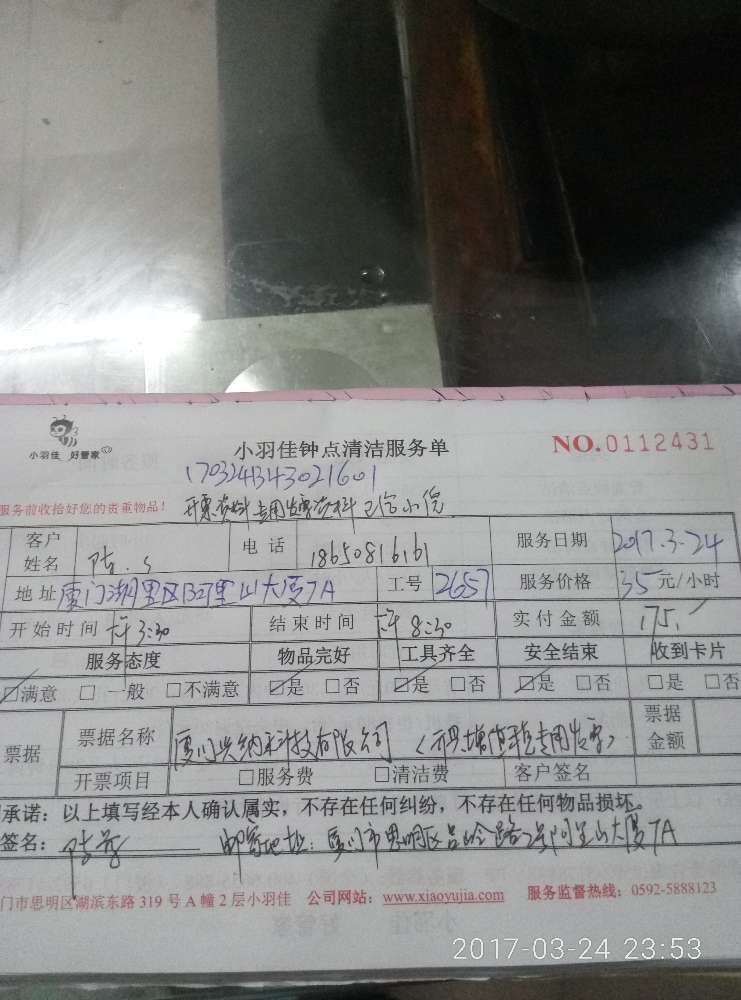 小羽佳 好管家
小羽佳钟点清洁服务单
NO.0112431
170324134302160​1
服务前收拾好您的贵重物品！
开票资料专用发票资料已给小倪
客户姓名
电话 18650816161
服务日期 2017.3.24
地址 厦门湖里区阿里山大厦7A
工号 2657
服务价格 35元/小时
开始时间 下午3:30
结束时间 下午8:30
实付金额 175.
服务态度 物品完好 工具齐全 安全结束 收到卡片
☑满意 □一般 □不满意 ☑是 □否 ☑是 □否 ☑是 □否 □是 □否
票据
票据名称 厦门兴纳科技有限公司（开增值税专用发票）
票据金额
开票项目 □服务费 □清洁费 客户签名
承诺：以上填写经本人确认属实，不存在任何纠纷，不存在任何物品损坏。
签名：
邮寄地址：厦门市思明区吕岭路2号阿里山大厦7A
门市思明区湖滨东路319号A幢2层小羽佳 公司网站：www.xiaoyujia.com 服务监督热线：0592-5888123
2017-03-24 23:53